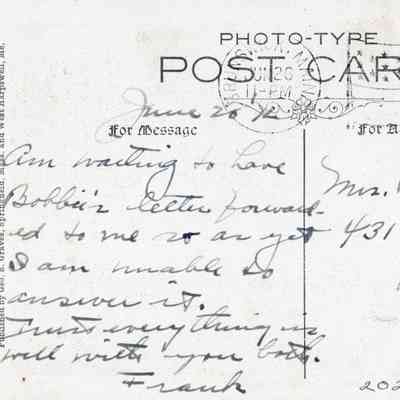 PHOTO-TYPE
POST CAR
BRUNSWICK, MAINE
JUN 20
11-PM
June 20 12
For Message
For A
Am waiting to have
Bobbie's letter forward-
ed to me so as yet
I am unable to
answer it.
Trust everything is
well with you both.
Frank
Mrs.
431
202
Published by Geo. S. Graves, Springfield, Mass. and West Harpswell, Me.